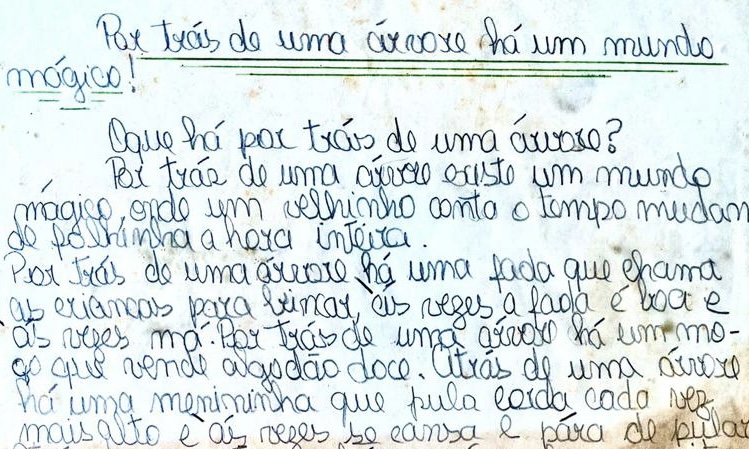 Por trás de uma árvore há um mundo
mágico!
Oque há por trás de uma árvore?
Por trás de uma árvore existe um mundo
mágico, onde um velhinho conta o tempo mudan
do folhinha a hora inteira.
Por trás de uma árvore há uma fada que chama
as crianças para brincar, ás vezes a fada é boa e
ás vezes má. Por trás de uma árvore há um mo-
ço que vende algodão doce. Atrás de uma árvore
há uma menininha que pula corda cada vez
mais alto e ás vezes se cansa e pára de pular